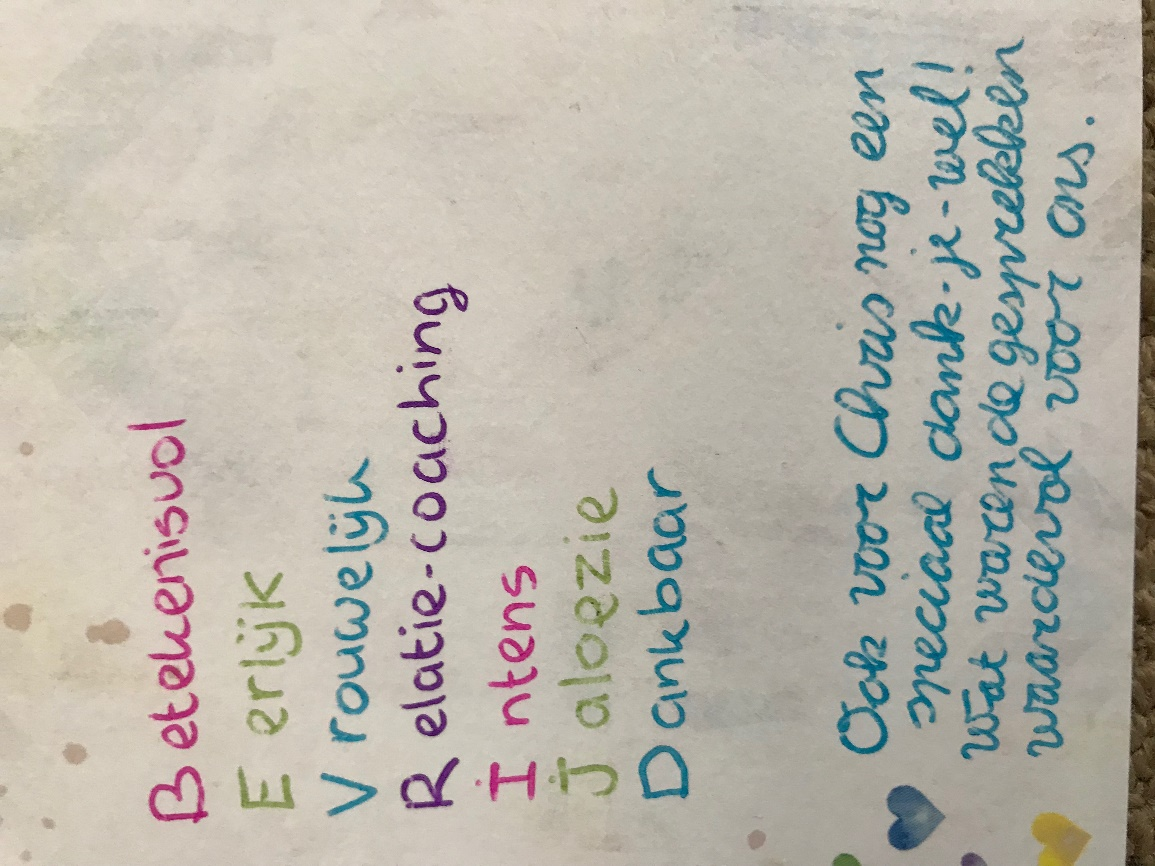 Betekenisvol
Eerlijk
Vrouwelijk
Relatie-coaching
Intens
Jaloezie
Dankbaar
Ook voor Chris nog een
speciaal dank-je-wel!
Wat waren de gesprekken
waardevol voor ons.